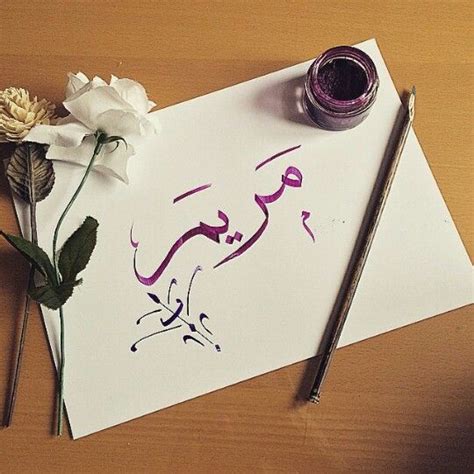 مَريمَ
م